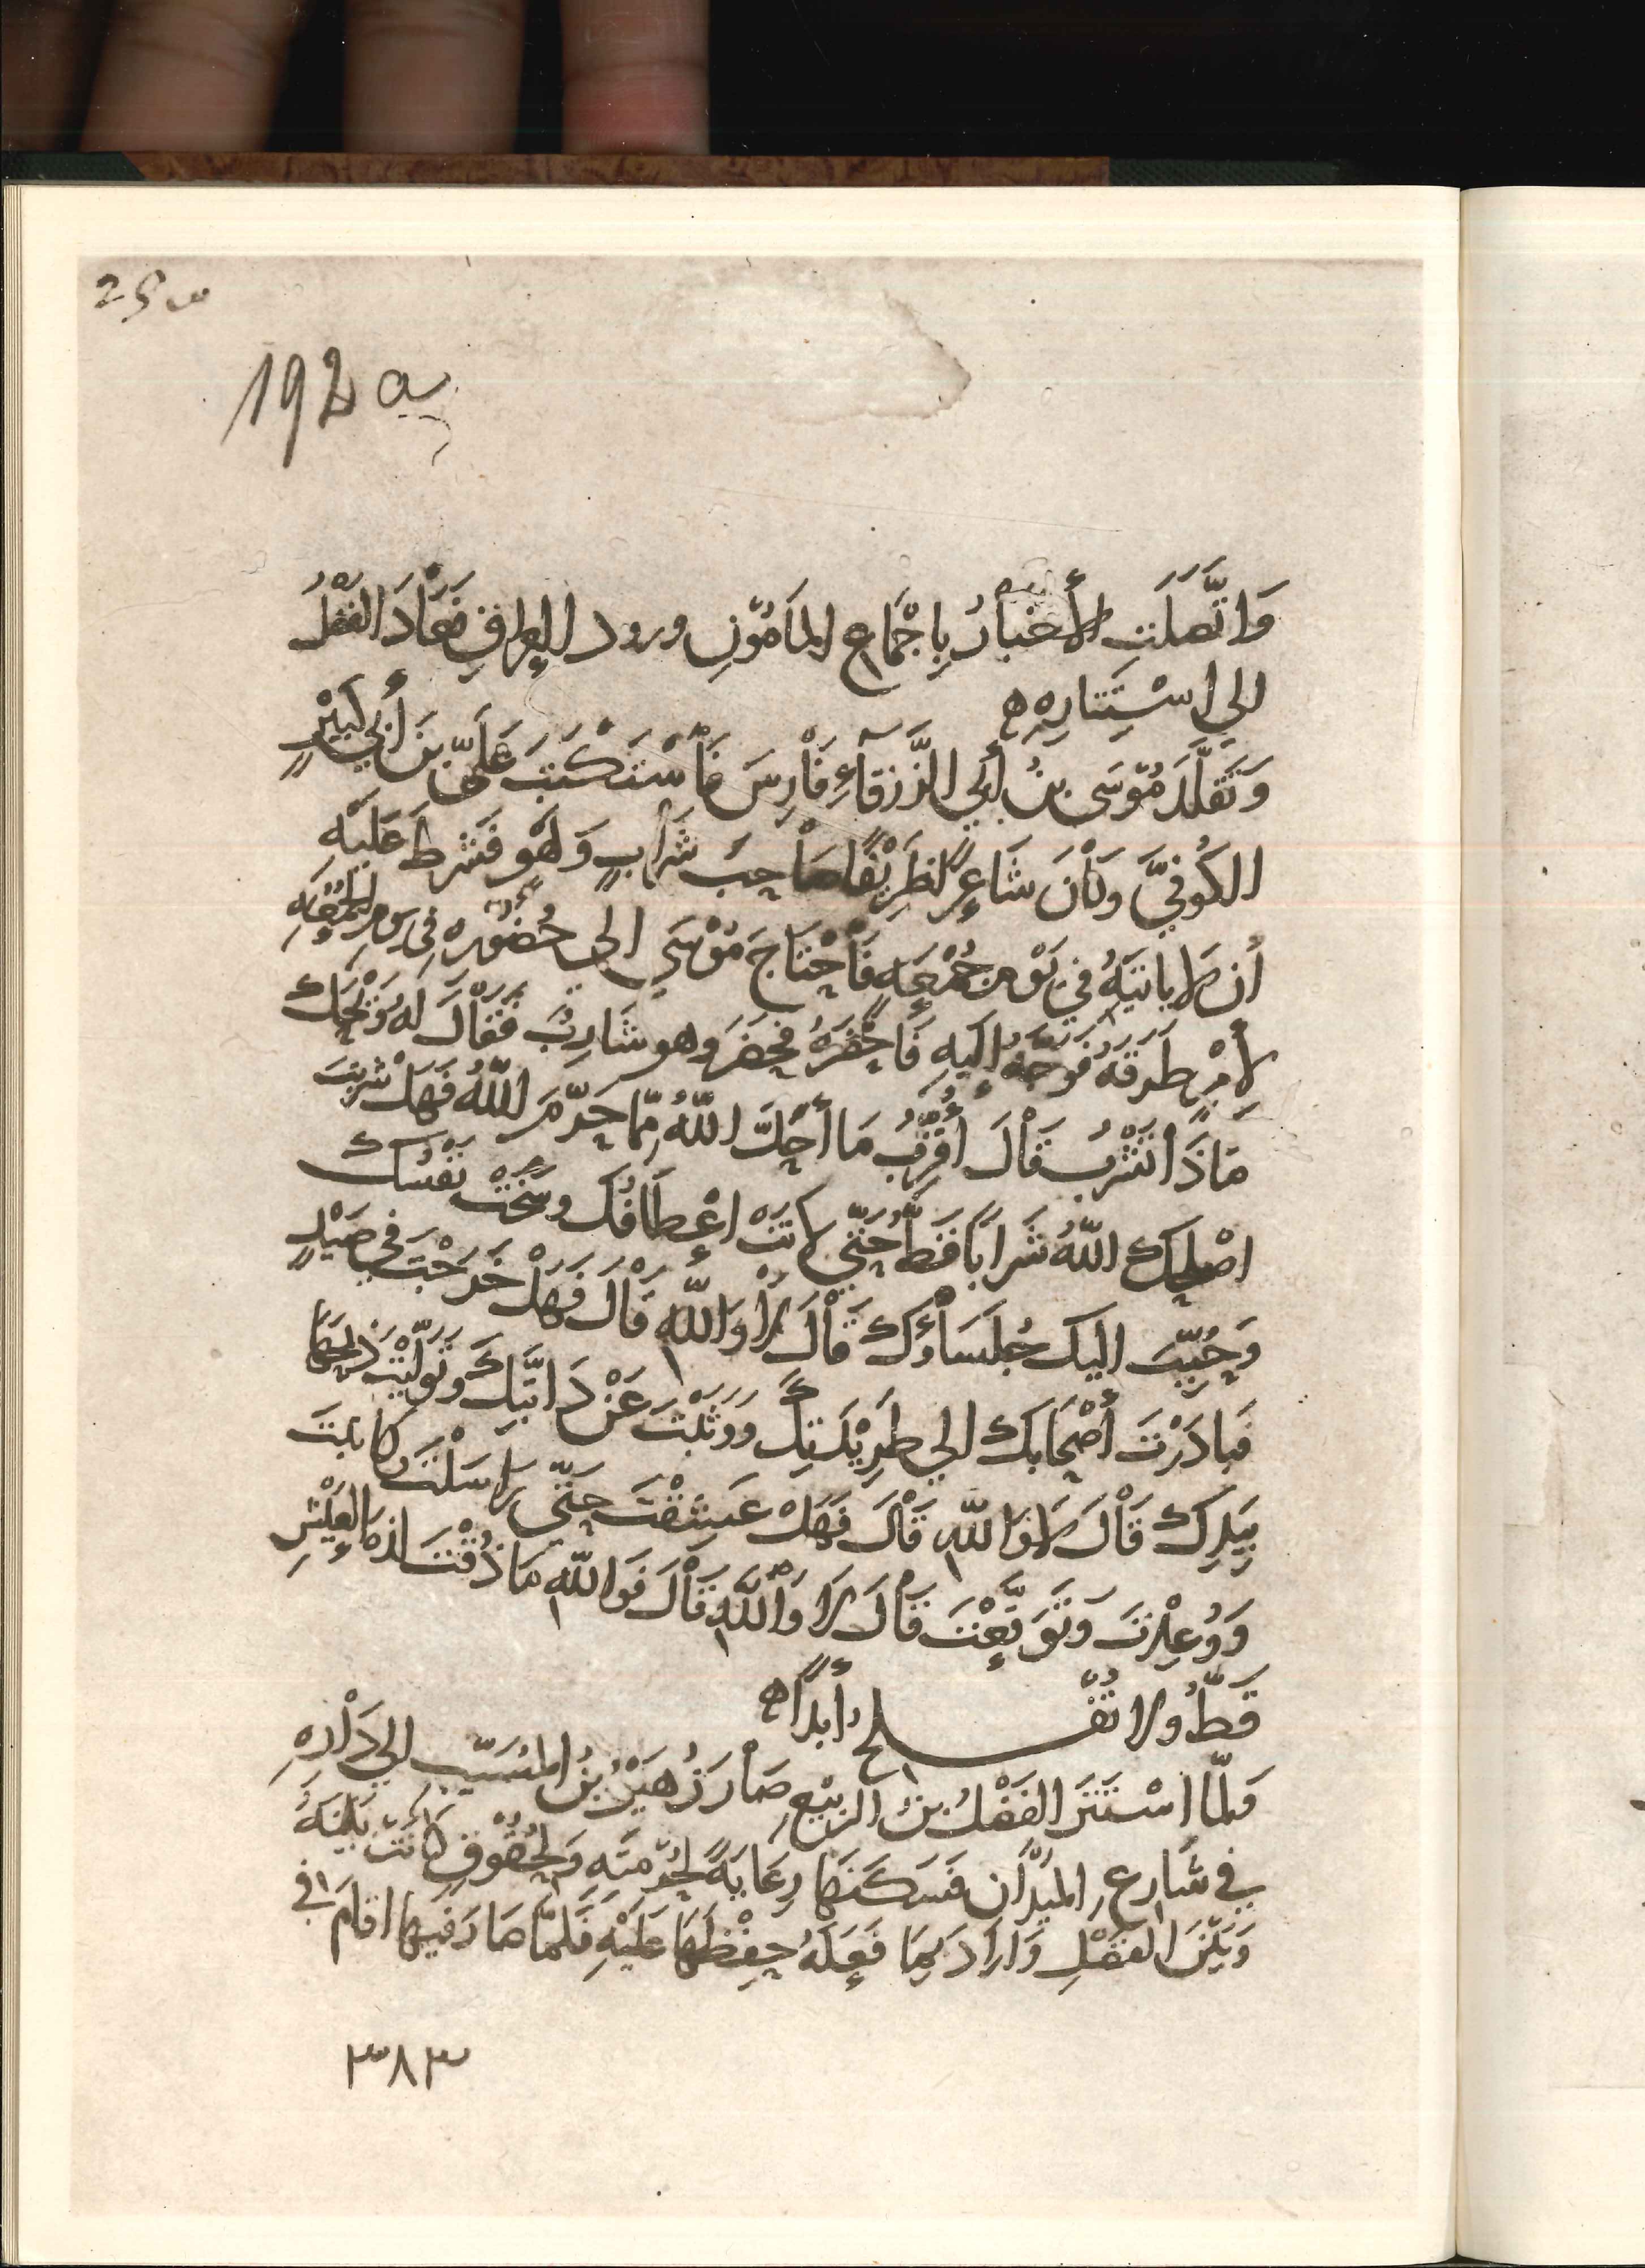 192 a
وَاتَّصَلَتِ الأَخْبَارُ بِاجْمَاعِ المَأمُوْنِ ورود العراقِ فَعَادَ الفَضْلُ
الي اِسْتِتَارِهِ
وَتَقَلَّدَ مُوْسَى بنُ أبي الزَّرْقَآءِ فَارِسَ فَاسْتَكْتَبَ عَلَيّ بنَ أبي كَبِيْرٍ
الكُوفيَّ وكَانَ شَاعِرًا ظَرِيْفًا صَاحِبَ شَرَابٍ وَلَهْوٍ فَشَرطَ عَلَيْهِ
أن لا ياتيَهُ في يَوْمِ جُمْعَه فَاحْتَاجَ مُوْسَي الي حُضُوْرِه في يومِ الجُمُعَهِ
لأمْرٍ طَرَقَهُ فَوَجَّهَ اليهِ فَاحْضَرَهُ فحضَرَ وهو شَارِبٌ فَقَالَ لَهُ وَيْحَكَ
مَاذَا تَشْرَبُ قَالَ أُفَرِّقُ مَا أحَلَّ اللهُ مِمّا حَرّمَ اللهُ فَهَلْ شَرِبتَ
اصْلحكَ اللهُ شَرَابًا قَطُّ حَتّى لانَتْ اعْطَافُكَ وسَخَتْ نَفْسُكَ
وَحُبِّبَ اليكَ جُلسَاؤكَ قَالَ لا وَاللهِ قَالَ فَهَلْ خَرَجْتَ في صَيْدٍ
فَبادَرْتَ أصْحَابكَ الي طَرِيْدَتِكَ وَوَثَبْتَ عَنْ دَابَّتِكَ وتَولّيْتَ ذَبْحَهَا
بِيَدِكَ قَالَ لا وَاللهِ قَالَ فَهَلْ عَشِقْتَ حَتّى رَاسَلْتَ وكاتبتَ
وَوُعِدْتَ وَتَوَقَّعْتَ قَالَ لا وَاللهِ قَالَ فَوَاللهِ مَا ذُقْتَ لذةَ العَيْشِ
قَطُّ ولا تُفْلحُ أبدًا
فَلمّا اسْتَتَرَ الفَضْلُ بن الرَبيْعِ صَارَ زُهَيْرُ بنُ المُسَيّبِ الي دَارِهِ
في شَارِعِ المَيْدَانِ فَسَكَنَهَا رِعَايَةً لحُرْمَتِهِ وَلحُقُوْقٍ كانَتْ بَيْنَهُ
وَبَيْنَ الفَضْلِ وَارَادَ بمَا فَعَلَهُ حِفْظَهَا عَلَيْهِ فَلَمّا صَارَ فيها اقَامَ في
٣٨٣